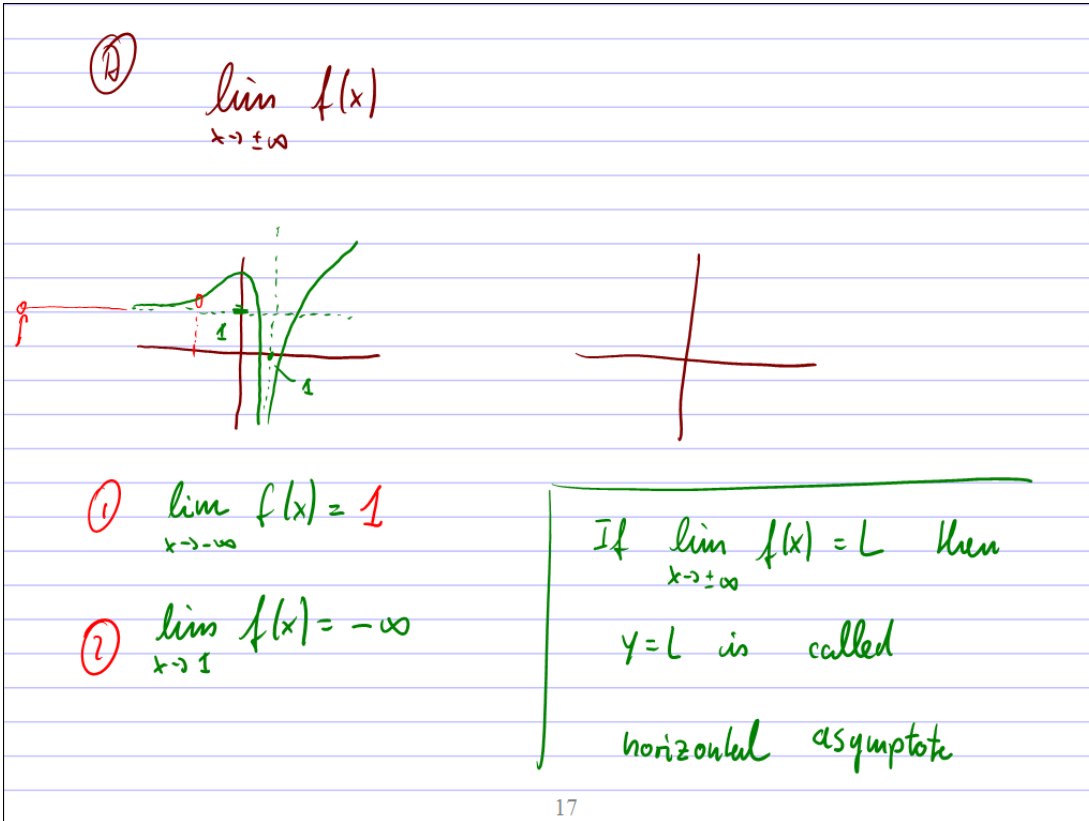 Ⓓ
lim f(x)
x→±∞
1
1
① lim f(x) = 1
x→-∞
② lim f(x) = -∞
x→1
If lim f(x) = L then
x→±∞
y=L is called
horizontal asymptote
17